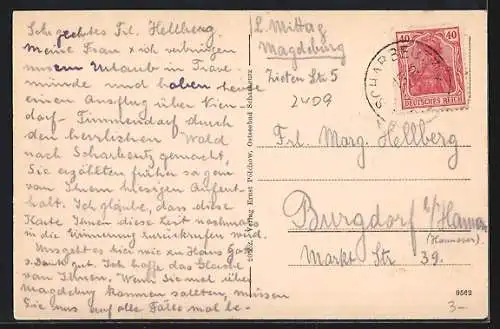 Sehr geehrtes Frl. Hellberg.
Meine Frau x ich verbringen
unsern Urlaub in Trave-
münde und haben heute
einen Ausflug über Nien-
dorf-Timmendorf durch
den herrlichen Wald
nach Scharbeutz gemacht,
Sie erzählten früher so gern
von Ihrem hiesigen Aufent-
halt. Ich glaube, dass diese
Karte Ihnen diese Zeit nochmals
in die Erinnerung zurückrufen wird.
Uns geht es hier wie zu Haus Gott
s. Dank gut. Ich hoffe das Gleiche
von Ihnen. Wenn Sie mal über
Magdeburg kommen sollten, müssen
Sie uns auf alle Fälle mal be-
Verlag Ernst Pölchow, Ostseebad Scharbeutz
L. Mittag
Magdeburg
Zieten Str. 5
2409
40 40
DEUTSCHES REICH
SCHARBE
Frl. Marg. Hellberg
Burgdorf b/Hannov
(Hannover)
Markt Str 39.
9562
3-